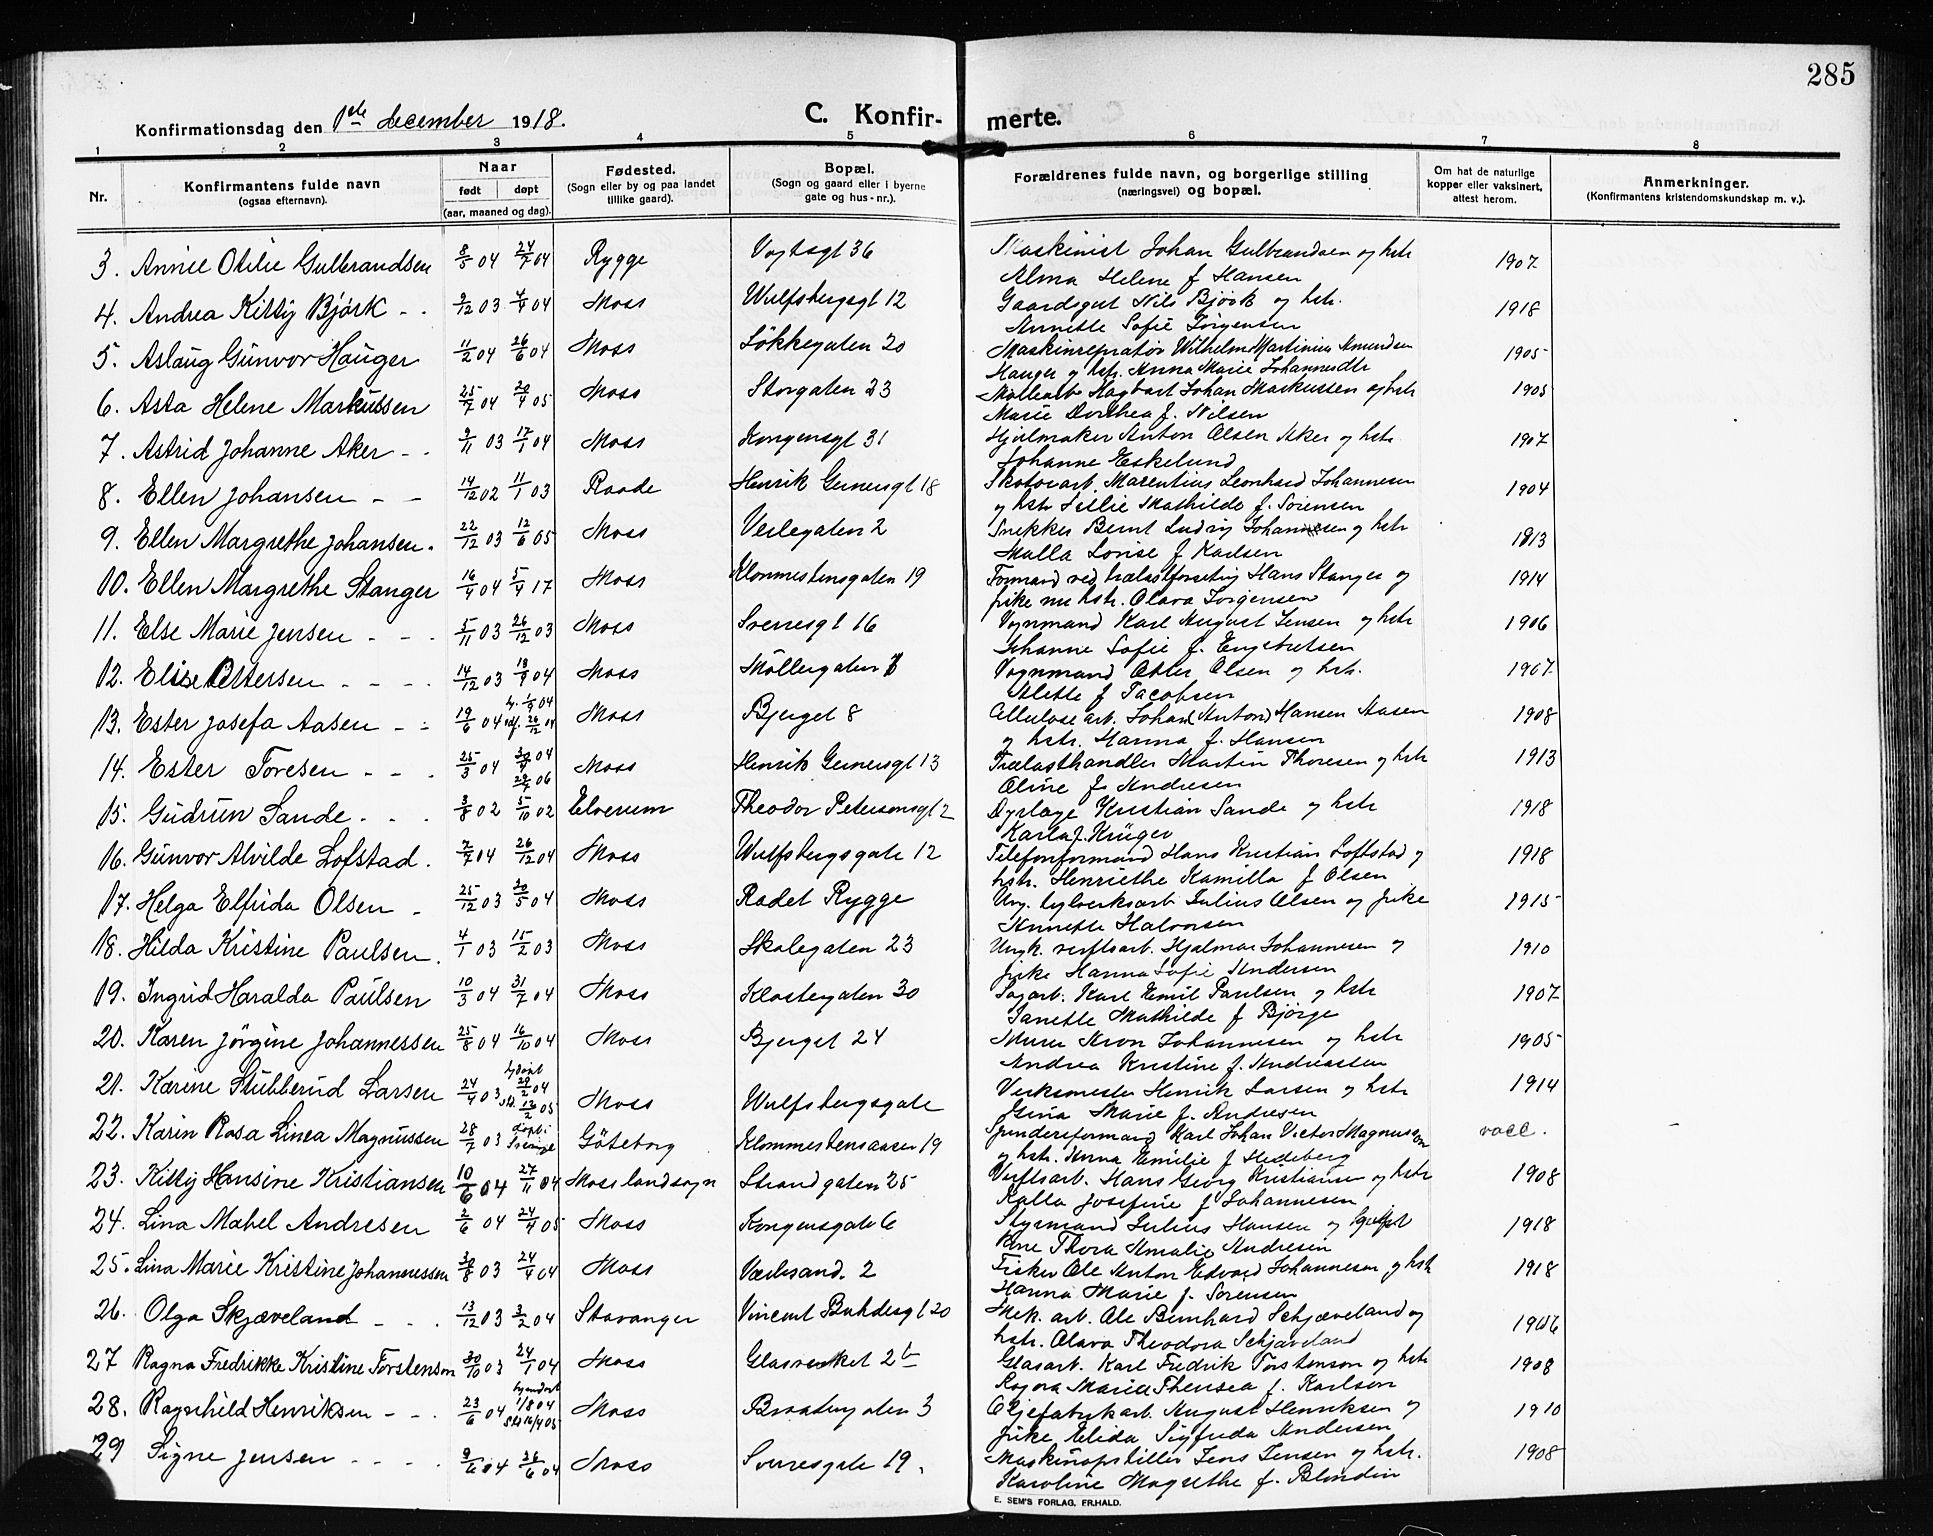 285
Konfirmationsdag den 1ste december 1918.
C. Konfirmerte.
1 2 3 4 5 6 7 8
Nr.
Konfirmantens fulde navn
(ogsaa efternavn).
Naar
født døpt
(aar, maaned og dag).
Fødested.
(Sogn eller by og paa landet
tillike gaard).
Bopæl.
(Sogn og gaard eller i byerne
gate og hus-nr.).
Forældrenes fulde navn, og borgerlige stilling
(næringsvei) og bopæl.
Om hat de naturlige
kopper eller vaksinert,
attest herom.
Anmerkninger.
(Konfirmantens kristendomskundskap m. v.).
3. Annie Otilie Gulbrandsen 8/5 04 24/7 04 Rygge Vogtsgt 36 Maskinist Johan Gulbrandsen og hstr 1907
Alma Helene f Hansen
4. Andrea Kitty Bjørk - - 9/12 03 4/4 04 Moss Wulfsbergsgt 12 Gaardsgut Nils Bjørk og hstr. 1918
Annette Sofie Jørgensen
5. Aslaug Gunvor Hauger 11/2 04 26/6 04 Moss Løkkegaten 20 Maskinrepratør Wilhelm Martinius Amundsen 1905
Hauger og hstr. Anna Marie Johannesdtr
6. Asta Helene Markussen 25/7 04 20/4 05 Moss Storgaten 23 Møllearb Hagbart Johan Markussen og hstr 1905
Marie Dorthea f. Nilsen
7. Astrid Johanne Aker - - 9/11 03 17/1 04 Moss Kongensgt 31 Hjulmaker Anton Olsen Aker og hstr 1907
Johanne Eskelund
8. Ellen Johansen - - 14/12 02 11/1 03 Raade Henrik Gernersgt 18 Skotøiarb. Marentius Leonhard Johannesen 1904
og hstr Lillie Mathilde f. Sørensen
9. Ellen Margrethe Johansen. 22/12 03 12/6 05 Moss Verlegaten 2 Snekker Bernt Ludvig Johannesen og hstr 1913
Malla Lovise f Karlsen
10. Ellen Margrethe Stanger 16/4 04 5/4 17 Moss Klommestensgaten 19 Formand ved trælastforretning Hans Stanger og 1914
pike nu hstr. Olava Jørgensen
11. Else Marie Jensen - - - 5/11 03 26/12 03 Moss Sverresgt 16 Vognmand Karl August Jensen og hstr 1906
Johanne Sofie f. Engebretsen
12. Elise Ottersen - - - - 14/12 03 18/9 04 Moss Møllergaten Vognmand Otter Olsen og hstr. 1907
Alette f Jacobsen
13. Ester Josefa Aasen - - 19/6 04 Moss Bjerget 8 Cellulosearb. Johan Anton Hansen Aasen 1908
og hstr. Hanna f. Hansen
14. Ester Toresen - - - 25/3 04 Moss Henrik Gernersgt 13 Trælasthandler Martin Thoresen og hstr 1913
Oline f. Andresen
15. Gudrun Sande - - - 3/8 02 5/10 02 Elverum Theodor Petersensgt 2 Dyrlæge Kristian Sande og hstr 1918
Karla f. Krüger
16. Gunvor Alvilde Lofstad. 2/7 04 26/12 04 Moss Wulfsbergsgate 12 Telefonformand Hans Kristian Loftstad og 1918
hstr. Henriethe Kamilla f Olsen
17. Helga Elfrida Olsen - 25/12 03 30/5 04 Moss Rødet Rygge Ung. sylverksarb Julius Olsen og pike 1915
Annette Halvorsen
18. Hilda Kristine Paulsen. 4/1 03 15/2 03 Moss Skolegaten 23 Ungk. verftsarb. Hjalmar Johannesen og 1910
pike Hanna Sofie Andersen
19. Ingrid Haralda Paulsen 10/3 04 31/7 04 Moss Klostergaten 30 Sagarb. Karl Emil Paulsen og hstr 1907
Janette Mathilde f Bjørge
20. Karen Jørgine Johannessen 25/8 04 16/10 04 Moss Bjerget 24 Murer Aron Johannesen og hstr 1905
Andrea Kristine f. Andreassen
21. Karine Stubberud Larsen 24/4 03 hjdøpt 29/2 04 st. 12/2 05 Moss Wulfsbergsgate Verksmester Henrik Larsen og hstr 1914
Gina Marie f. Andresen
22. Karin Rosa Linea Magnussen 28/7 03 døpt i Sverige Göteborg Klommestensaasen 19 Karl Johan Victor Magnusson vacc.
og hstr. Anna Emilie f Hedeberg
23. Kitty Hansine Kristiansen 10/6 04 27/11 04 Moss landsogn Strandgaten 25 Verftsarb. Hans Georg Kristiansen og hstr 1908
Kalla Josefine f Johannesen
24. Lina Mabel Andresen 2/6 04 24/4 05 Moss Kongensgate 6 Styrmand Julius Hansen og 1918
Thora Amalie Andresen
25. Lina Marie Kristine Johannessen 30/8 03 24/4 04 Moss Værlesand. 2 Fisker Ole Anton Edvard Johannesen og hstr 1918
Hanna Marie f. Sørensen
26. Olga Skjæveland - - - 13/12 03 3/2 04 Stavanger Vincent Buddesgt 20 Mek. arb. Ole Bernhard Schjæveland og 1906
hstr. Olava Theodora Schjæveland
27 Ragna Fredrikke Kristine Torstenson 30/10 03 24/1 04 Moss Glasverket 2b Glasarb. Karl Fredrik Torstenson og hstr 1908
Maria Theresea f. Karlson
28. Ragnhild Henriksen - - - 23/6 04 hjemdøpt 1/8 04 St. 16/4 05 Moss Braatengaten 3 Oljefabrikarb. August Henriksen og 1910
pike Elida Sigfrida Andersen
29 Signe Jensen - - - - 9/6 04 26/6 04 Moss Sverresgate 19. Maskinopstiller Jens Jensen og hstr. 1908
Karoline Magrethe f. Blondin
E. SEM'S FORLAG, FR.HALD.